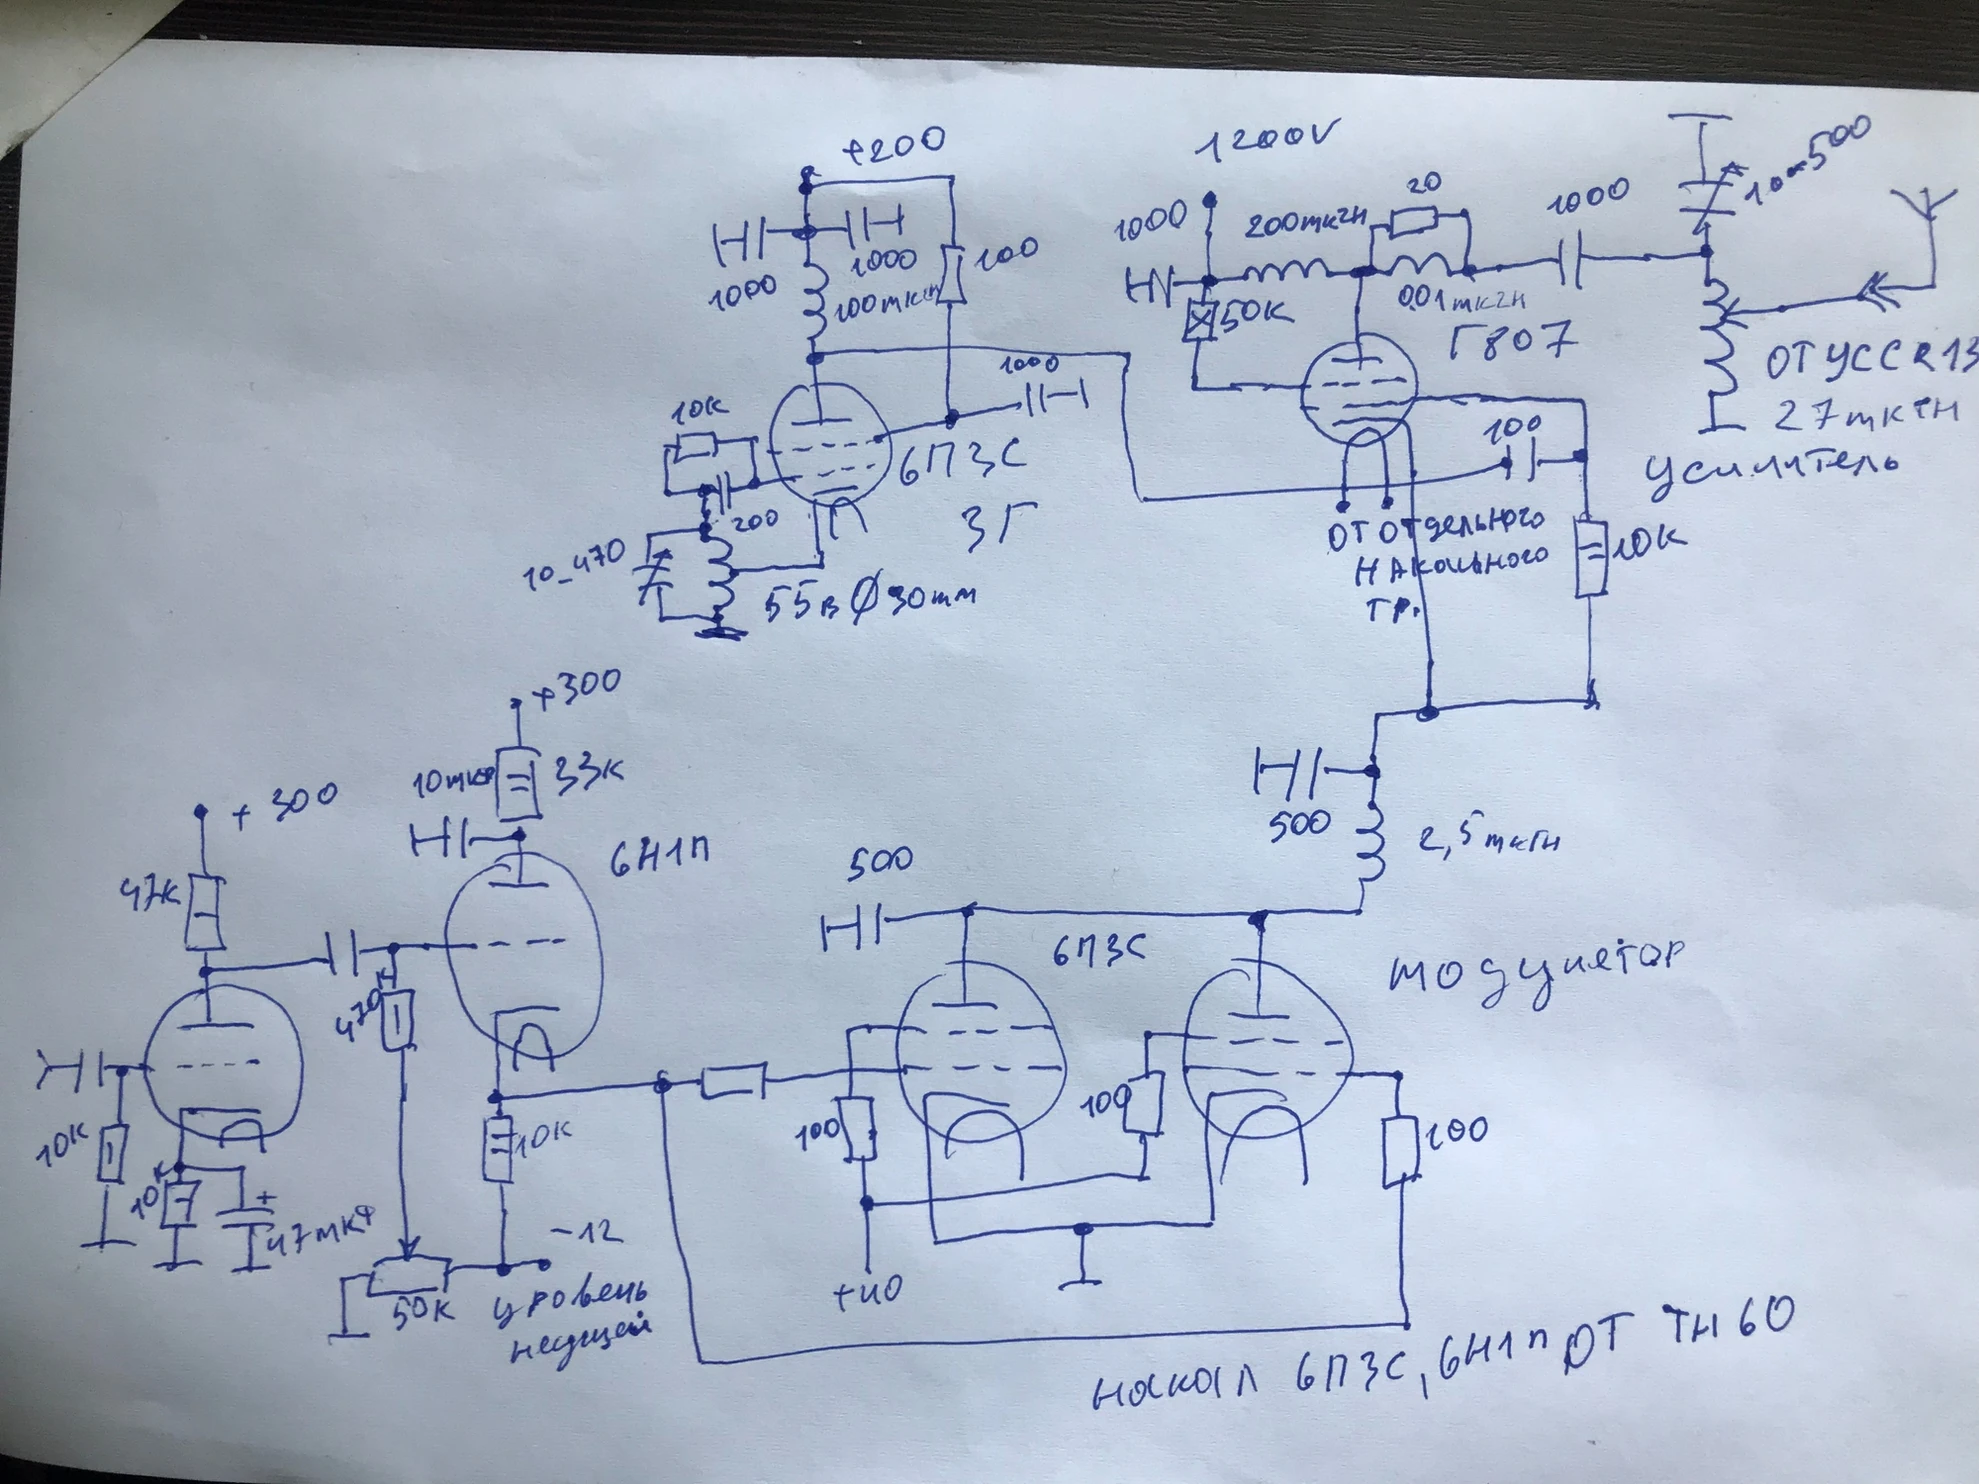 +200
1000
1000
100мкгн
100
1000
10к
200
6П3С
ЗГ
10-470
55в Ø30mm
1200V
1000
200мкгн
20
1000
10-500
50к
0,01мкгн
Г807
ОТ УССR13
27мкгн
усилитель
100
от отдельного
накального
тр.
10к
500
2,5мкгн
+300
10мкф
33к
6Н1П
+300
47к
470
10к
10
47мкф
10к
-12
50к
уровень
несущей
500
6П3С
модулятор
100
100
100
накал 6П3С, 6Н1П ОТ ТН60